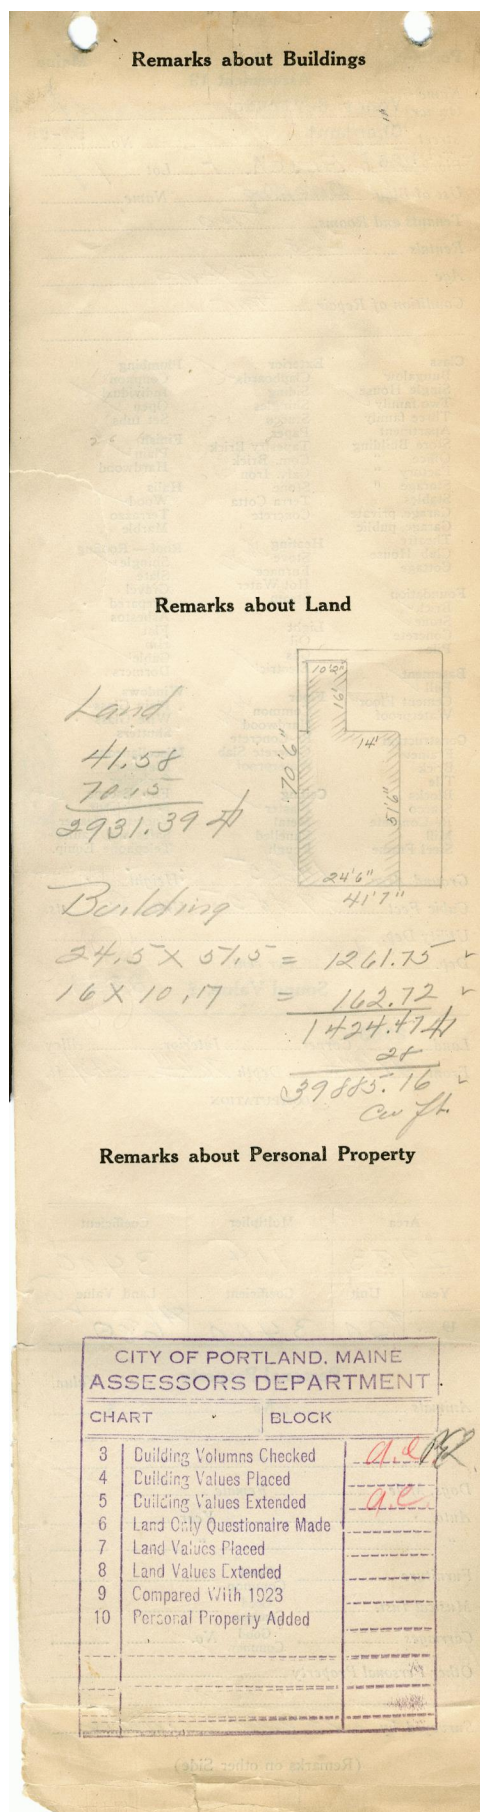 Remarks about Buildings
Remarks about Land
Land
41.58
70.5
2931.39
10'2"
16'
14'
70'6"
51'6"
24'6"
41'7"
Building
24.5 X 51.5 = 1261.75 ✓
16 X 10.17 = 162.72 ✓
1424.47
28
39885.16 ✓
cu ft.
Remarks about Personal Property
CITY OF PORTLAND, MAINE
ASSESSORS DEPARTMENT
CHART BLOCK
3 Building Volumns Checked a.e
4 Building Values Placed
5 Building Values Extended a.e.
6 Land Only Questionaire Made
7 Land Values Placed
8 Land Values Extended
9 Compared With 1923
10 Personal Property Added